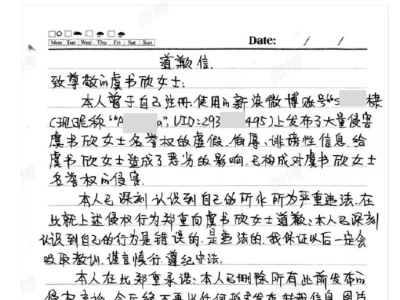 Mon Tue Wed Thu Fri Sat Sun
Date: / /
道歉信
致尊敬的虞书欣女士:
本人曾于自己注册、使用的新浪微博账号"s 棣
(现昵称"A a", UID:293 495)上发布了大量侵害
虞书欣女士名誉权的虚假、侮辱、诽谤性信息,给
虞书欣女士造成了恶劣的影响,已构成对虞书欣女士
名誉权的侵害.
本人已深刻认识到自己的所作所为严重违法,在
此就上述侵权行为郑重向虞书欣女士道歉:本人已深刻
认识到自己的行为是错误的,是违法的,我保证以后一定会
吸取教训,谨言慎行,遵纪守法.
本人在此郑重承诺:本人已删除所有此前发布的